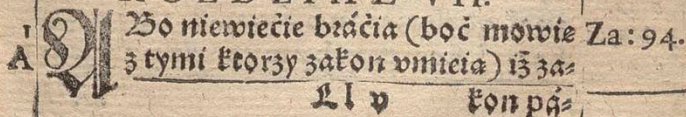 1
A
ABo niewiećie bráćia (boć mowię
z tymi ktorzy zakon vmieią) iż za-
Ll v kon pá-
Za: 94.